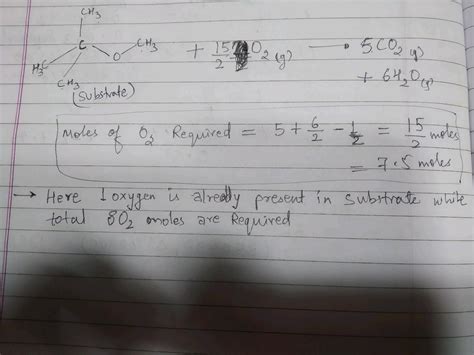 CH3
H3C C O CH3 + 15/2 O2 (g) → 5CO2 (g)
CH3 + 6H2O (g)
(Substrate)
Moles of O2 Required = 5 + 6/2 - 1/2 = 15/2 moles
= 7.5 moles
→ Here 1 oxygen is already present in Substrate while
total 8O2 moles are Required